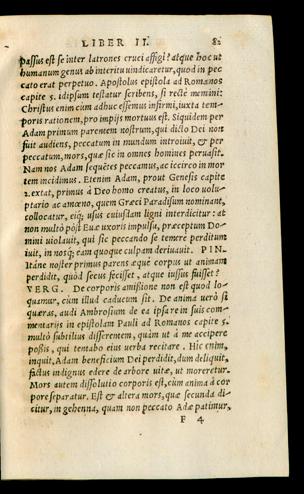 LIBER II. 82
passus est se inter latrones cruci affigi? atque hoc ut
humanum genus ab interitu uindicaretur, quod in pec
cato erat perpetuo. Apostolus epistola ad Romanos
capite 5. idipsum testatur scribens, si recte memini:
Christus enim cum adhuc essemus infirmi, iuxta tem-
poris rationem, pro impijs mortuus est. Siquidem per
Adam primum parentem nostrum, qui dicto Dei non
fuit audiens, peccatum in mundum introiuit, & per
peccatum, mors, quæ sic in omnes homines peruasit.
Nam nos Adam sequētes peccamus, ac iccirco in mor
tem incidimus. Etenim Adam, prout Genesis capite
2. extat, primus à Deo homo creatus, in loco uolu-
ptario ac amœno, quem Græci Paradisum nominant,
collocatur, eiq; usus cuiusdam ligni interdicitur: at
non multò pòst Euæ uxoris impulsu, præceptum Do-
mini uiolauit, qui sic peccando se temere perditum
iuit, in nosq; eam quoque culpam deriuauit. PIN.
Itáne noster primus parens æquè corpus ut animam
perdidit, quòd secus fecisset, atque iussus fuisset?
VERG. De corporis amissione non est quòd lo-
quamur, cùm illud caducum sit. De anima uerò si
quæras, audi Ambrosium de ea ipsa re in suis com-
mentarijs in epistolam Pauli ad Romanos capite 5.
multò subtilius differentem, quàm ut à me accipere
possis, qui tentabo eius uerba recitare. Hic enim,
inquit, Adam beneficium Dei perdidit, dum deliquit,
factus indignus edere de arbore uitæ, ut moreretur.
Mors autem dissolutio corporis est, cùm anima à cor
pore separatur. Est & altera mors, quæ secunda di-
citur, in gehenna, quam non peccato Adæ patimur,
F 4